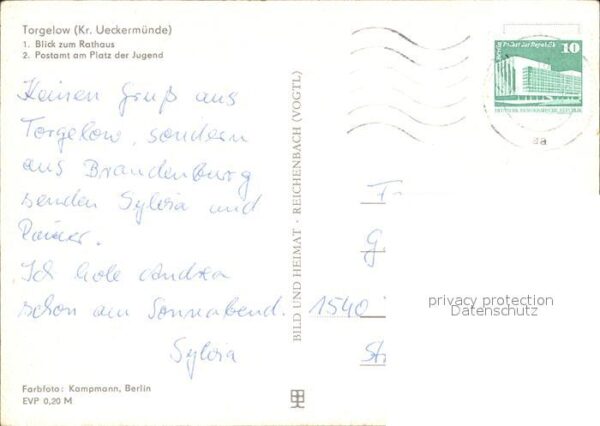 Torgelow (Kr. Ueckermünde)
1. Blick zum Rathaus
2. Postamt am Platz der Jugend
Keinen Gruß aus
Torgelow, sondern
aus Brandenburg
senden Sylvia und
Rainer.
Ich hole Andrea
schon am Sonnabend.
Sylvia
Farbfoto: Kampmann, Berlin
EVP 0,20 M
BILD UND HEIMAT · REICHENBACH (VOGTL)
Berlin Palast der Republik
10
DEUTSCHE DEMOKRATISCHE REPUBLIK
aa
F
G
1540
Str
privacy protection
Datenschutz